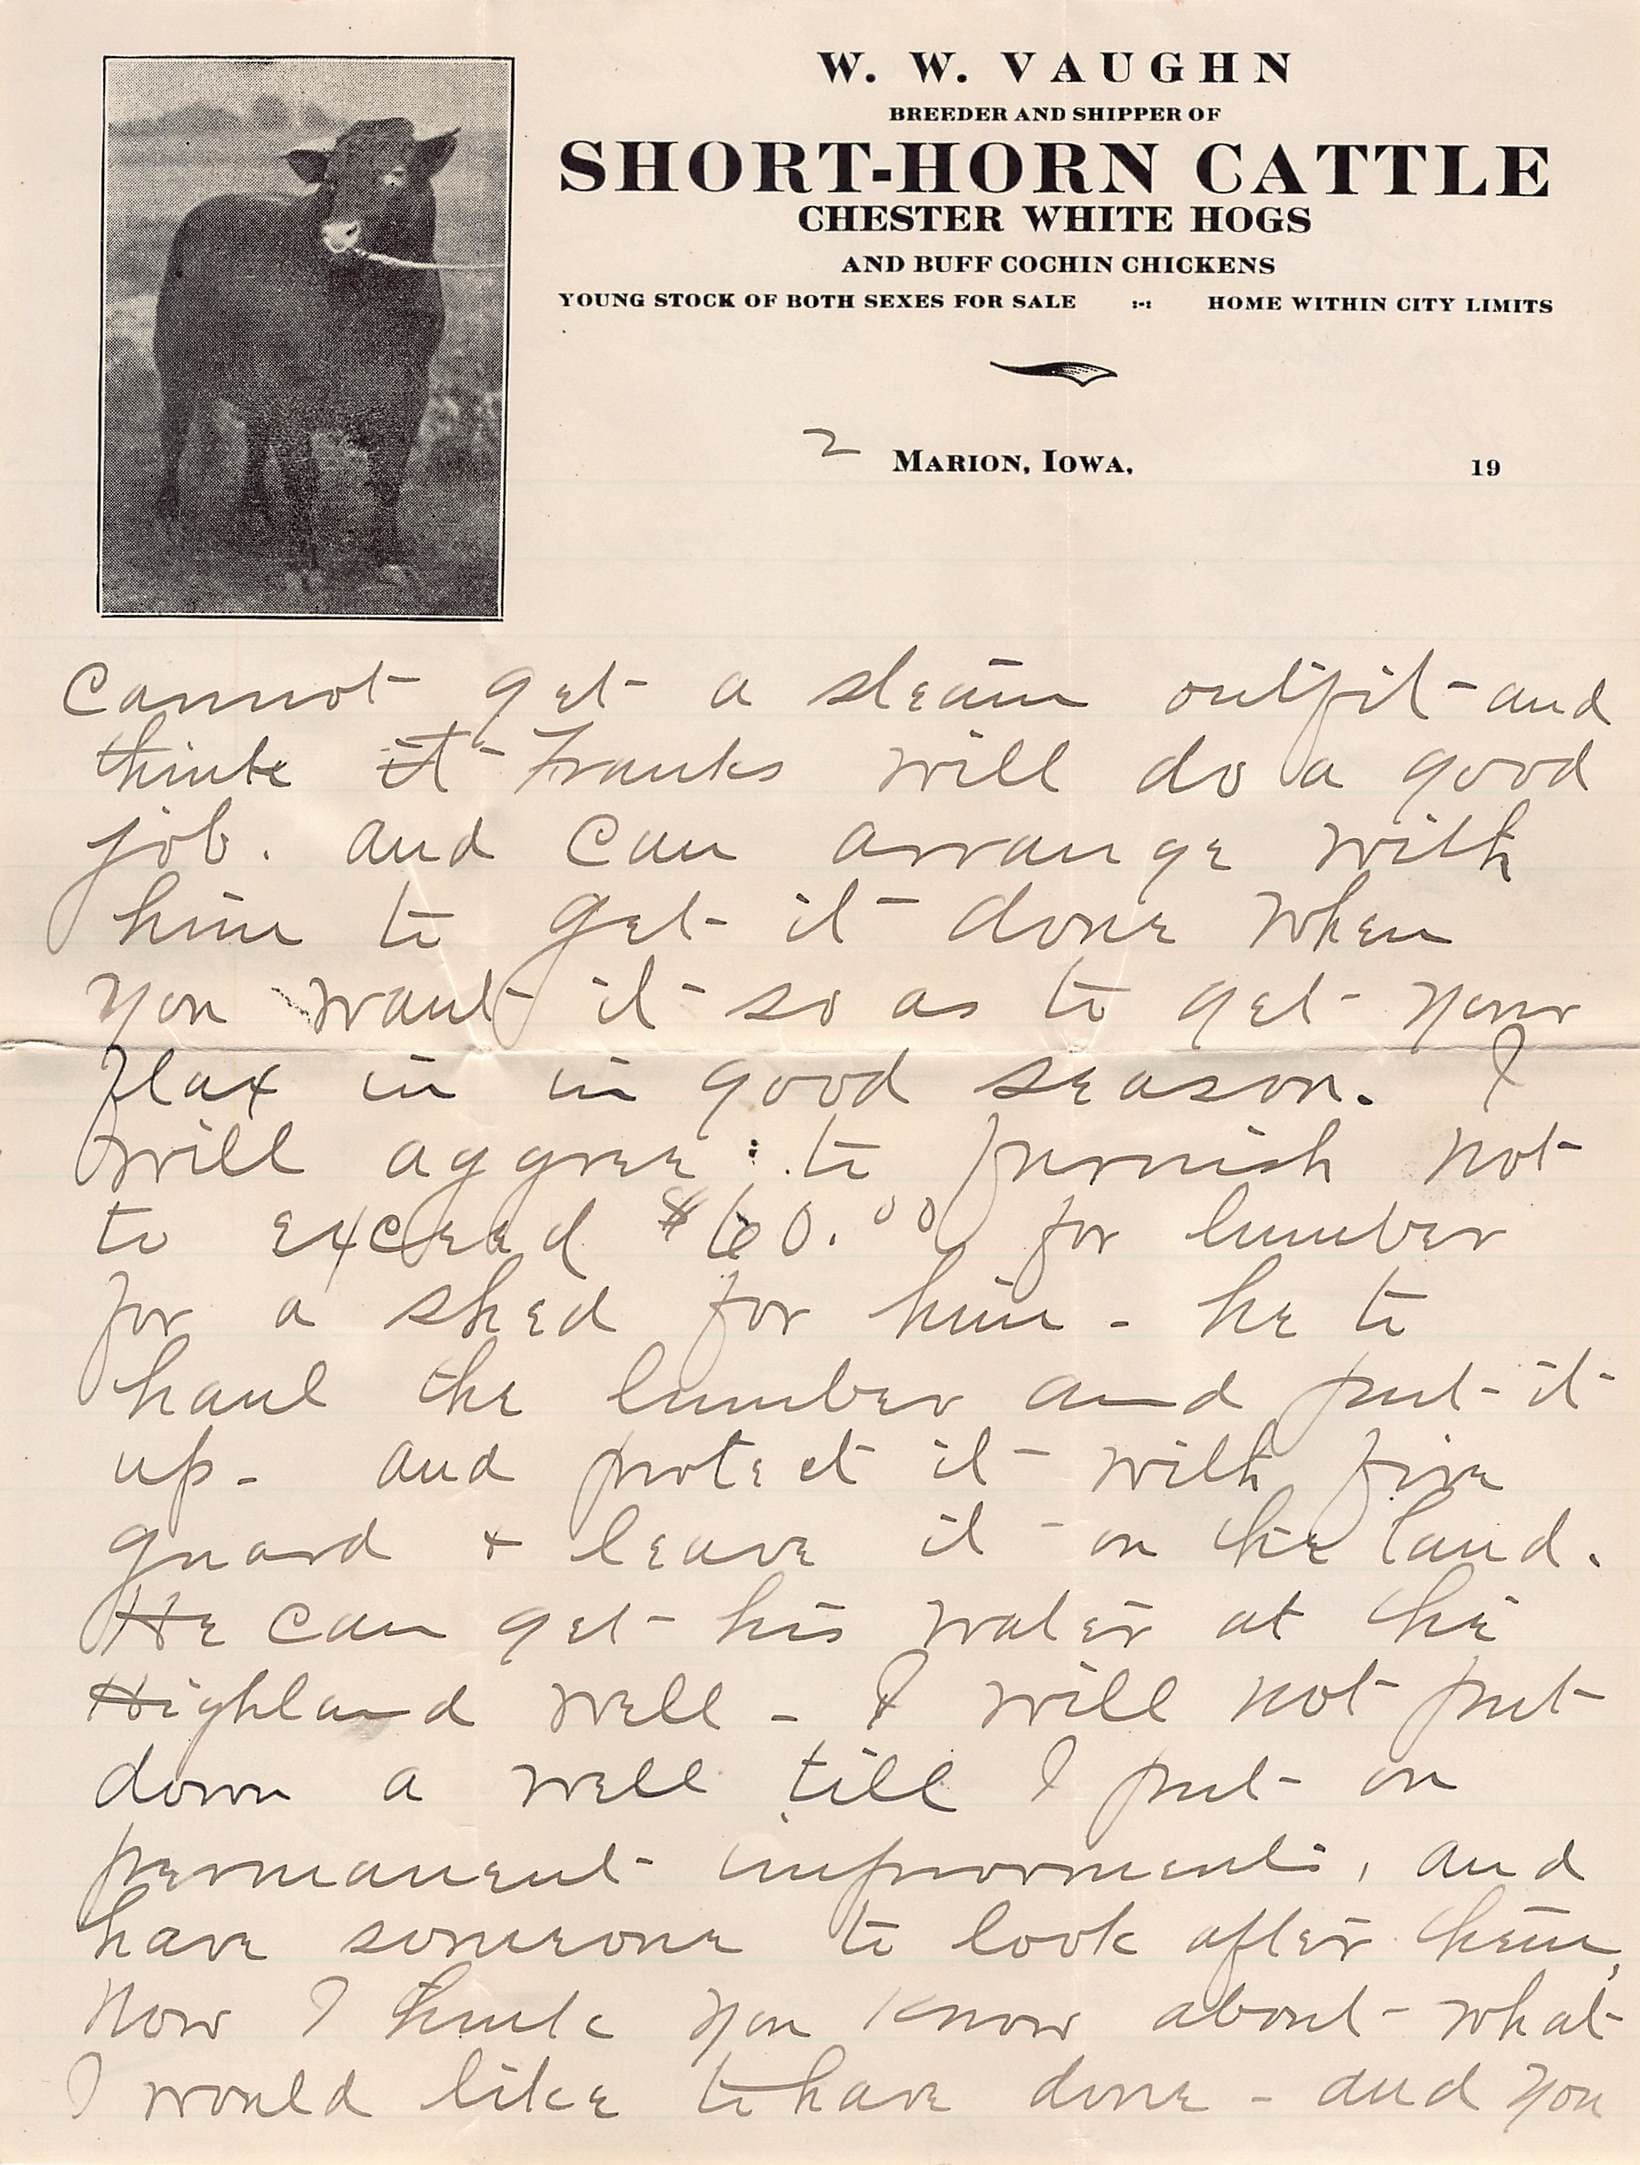 W. W. VAUGHN
BREEDER AND SHIPPER OF
SHORT-HORN CATTLE
CHESTER WHITE HOGS
AND BUFF COCHIN CHICKENS
YOUNG STOCK OF BOTH SEXES FOR SALE :-: HOME WITHIN CITY LIMITS
2 MARION, IOWA, 19
Cannot get a steam outfit - and
think it Franks will do a good
job. and can arrange with
him to get it done when
you want it so as to get your
flax in in good season. I
will aggree to furnish not
to exceed $60.00 for lumber
for a shed for him - he to
haul the lumber and put it
up - and protect it with fire
guard + leave it on the land.
He can get his water at the
Highland well - I will not put
down a well till I put on
permanent improvments, and
have someone to look after them,
Now I think you know about what
I would like to have done - and you